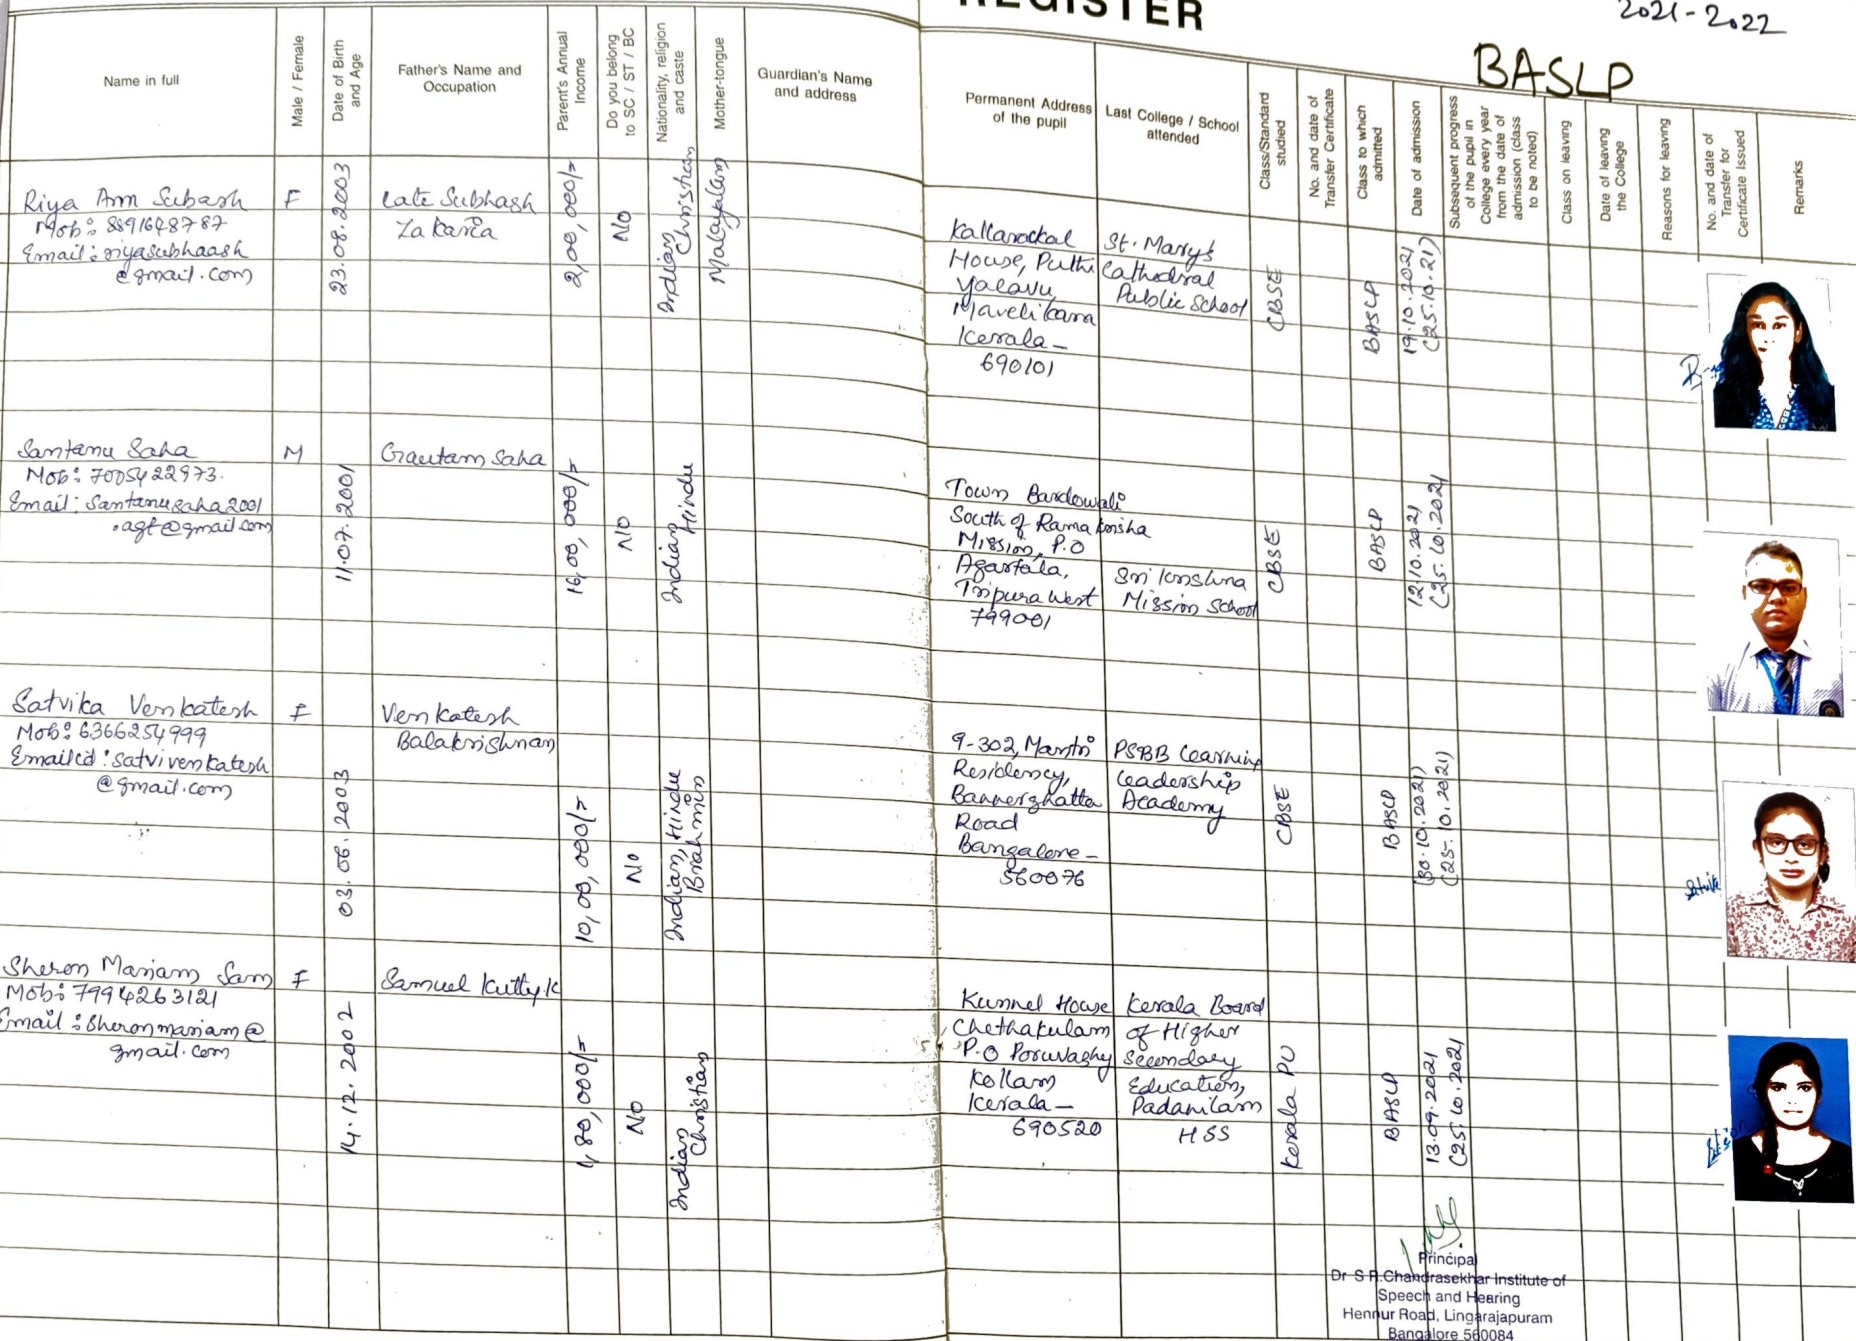 REGISTER
2021-2022
BASLP
Name in full
Male / Female
Date of Birth
and Age
Father's Name and
Occupation
Parent's Annual
Income
Do you belong
to SC / ST / BC
Nationality, religion
and caste
Mother-tongue
Guardian's Name
and address
Permanent Address
of the pupil
Last College / School
attended
Class/Standard
studied
No. and date of
Transfer Certificate
Class to which
admitted
Date of admission
Subsequent progress
of the pupil in
College every year
from the date of
admission (class
to be noted)
Class on leaving
Date of leaving
the College
Reasons for leaving
No. and date of
Transfer for
Certificate Issued
Remarks
Riya Ann Subash
Mob: 8891648787
Email: riyasubhaash
@gmail.com
F
23.08.2003
Late Subhash
Zakaria
2,00,000/=
No
Indian
Christian
Malayalam
Kallarackal
House, Puthi
yalavu,
Mavelikara
Kerala-
690101
St. Mary's
Cathedral
Public School
CBSE
BASLP
19.10.2021
(25.10.21)
Santanu Saha
Mob: 7005422973.
Email: Santanusaha2001
.agt@gmail.com
M
11.07.2001
Gautam Saha
16,00,000/=
No
Indian
Hindu
Town Bardowali
South of Ramakrisha
Mission, P.O
Agartala,
Tripura West
799001
Sri Krishna
Mission School
CBSE
BASLP
12.10.2021
(25.10.2021
Satvika Venkatesh
Mob: 6366254999
Emailid: satvivenkatesh
@gmail.com
F
03.06.2003
Venkatesh
Balakrishnan
10,00,000/=
No
Indian, Hindu
Brahmin
9-302, Mantri
Residency,
Bannerghatta
Road
Bangalore-
560076
PSBB Learning
Leadership
Academy
CBSE
BASLP
(30.10.2021)
(25.10.2021)
Satvika
Sheron Mariam Sam
Mob: 7994263121
Email: Sheronmariam@
gmail.com
F
14.12.2002
Samuel Kutty.K
1,80,000/=
No
Indian
Christian
Kunnel House
Chethakulam
P.O Poruvazhy
Kollam
Kerala-
690520
Kerala Board
of Higher
Secondary
Education,
Padanilam
HSS
Kerala PU
BASLP
13.09.2021
(25.10.2021
Principal
Dr S R.Chandrasekhar Institute of
Speech and Hearing
Hennur Road, Lingarajapuram
Bangalore 560084